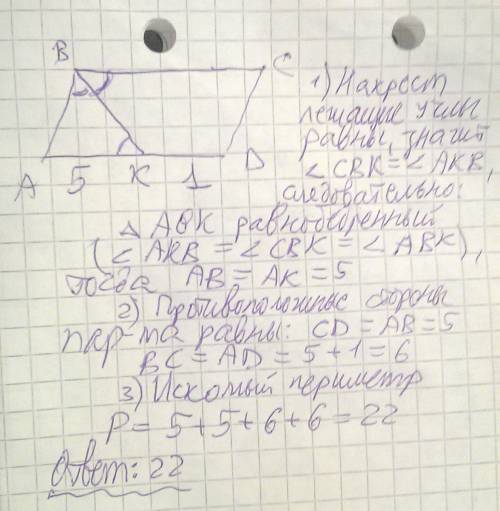 B C
A 5 K 1 D
1) Накрест
лежащие углы
равны, значит
∠CBK = ∠AKB,
следовательно:
△ ABK равнобедренный
(∠AKB = ∠CBK = ∠ABK),
тогда AB = AK = 5
2) Противоположные стороны
пар-ма равны: CD = AB = 5
BC = AD = 5 + 1 = 6
3) Искомый периметр
P = 5 + 5 + 6 + 6 = 22
Ответ: 22